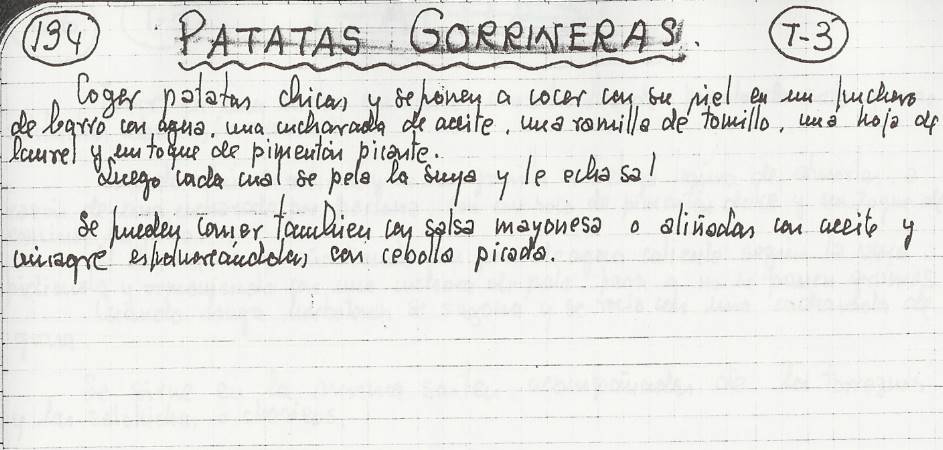 194 PATATAS GORRINERAS. T-3
Coger patatas chicas y se ponen a cocer con su piel en un puchero
de barro con agua, una cucharada de aceite, una ramilla de tomillo, una hoja de
laurel y un toque de pimentón picante.
Luego cada cual se pela la suya y le echa sal
Se pueden comer tambien con salsa mayonesa o aliñadas con aceite y
vinagre espolvoreándolas con cebolla picada.